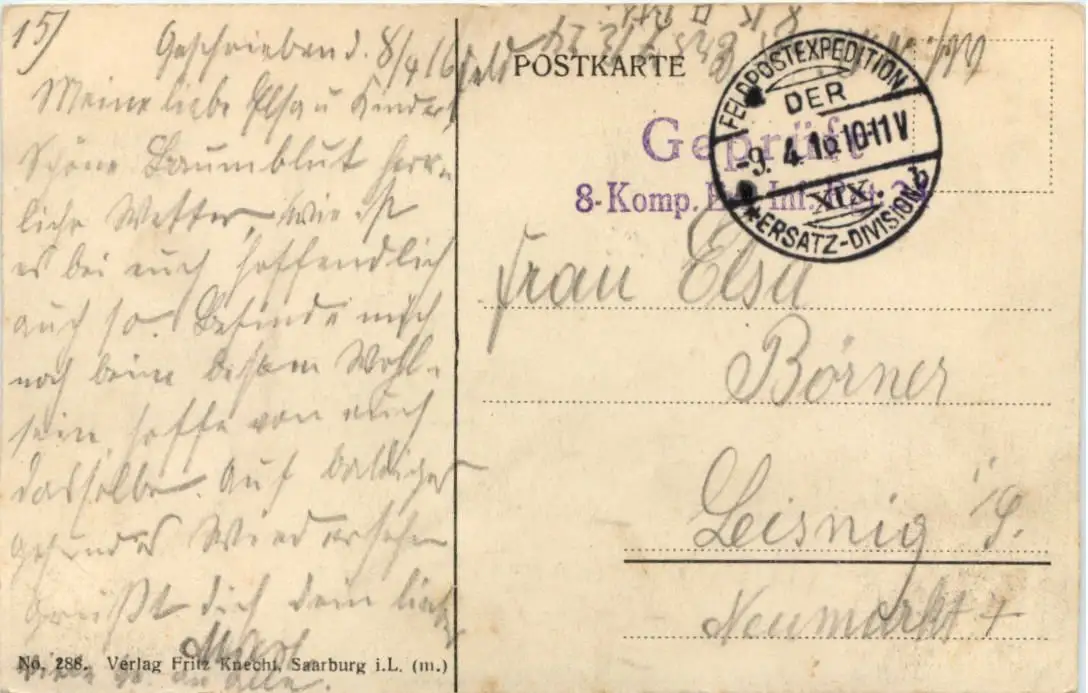 15)
Geschrieben d. 8/4 16
Meine liebe Elsa u Kinder
Schöne Baumblut herr-
liche Wetter, Wie ist
es bei euch hoffendlich
auch so. Befinde mich
noch beim besten Wohl-
sein, hoffe von euch
dasselbe. Auf baldiges
gesundes Wiedersehen
Grüßt dich dein lieber
an alle.
No. 288. Verlag Fritz Knecht, Saarburg i.L. (m.)
POSTKARTE
Geprüft
8-Komp. Inf.
FELDPOSTEXPEDITION
DER
-9. 4. 16 10-11 V
XIX.
* ERSATZ-DIVISION b
Frau Elsa
Börner
Leisnig i/S.
Neumarkt 7